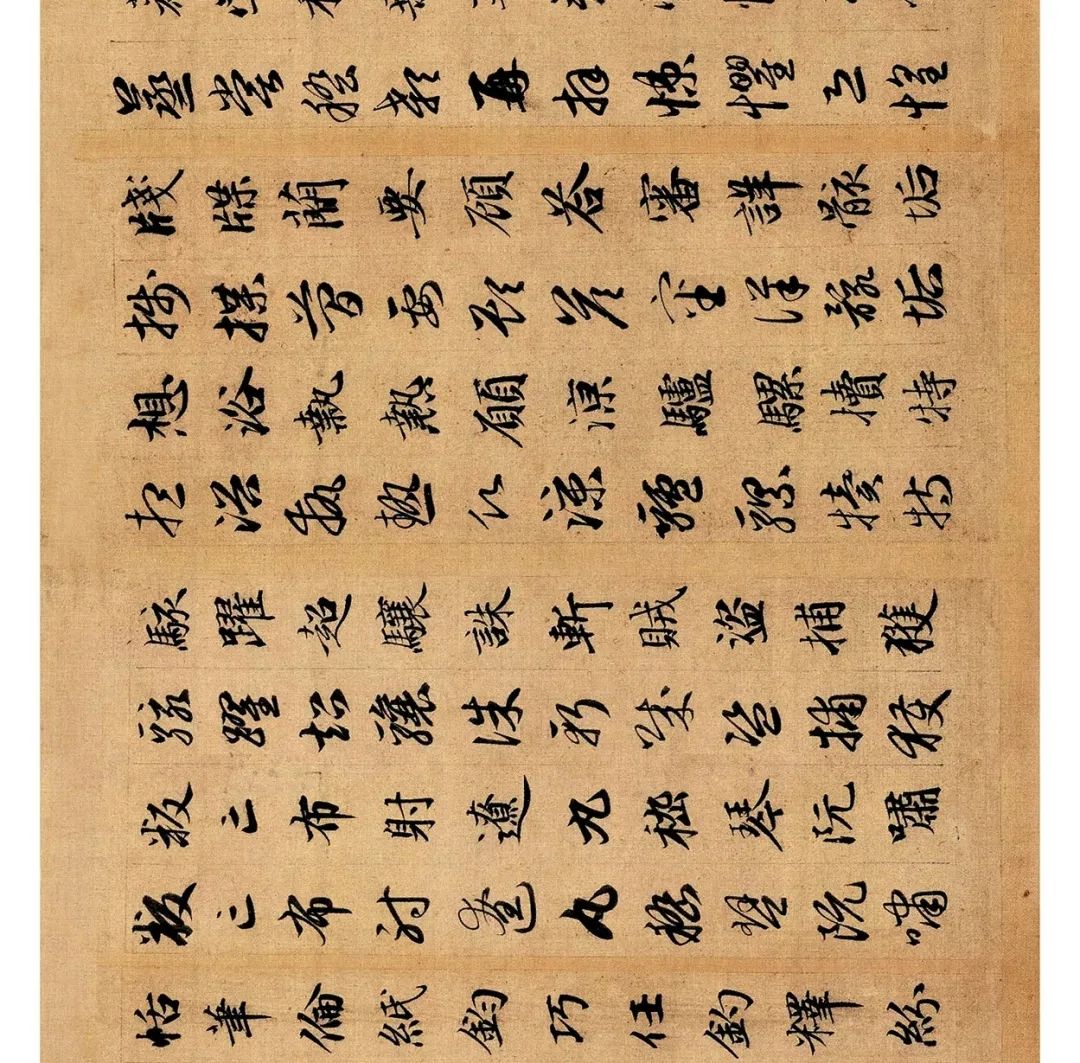 蒸嘗稽顙再拜悚懼恐惶
牋牒簡要顧答審詳骸垢
牋牒簡要顧答審詳骸垢
想浴執熱願涼驢騾犢特
想浴執熱願涼驢騾犢特
駭躍超驤誅斬賊盜捕獲
駭躍超驤誅斬賊盜捕獲
叛亡布射遼丸嵇琴阮嘯
叛亡布射遼丸嵇琴阮嘯
恬筆倫紙鈞巧任釣釋紛